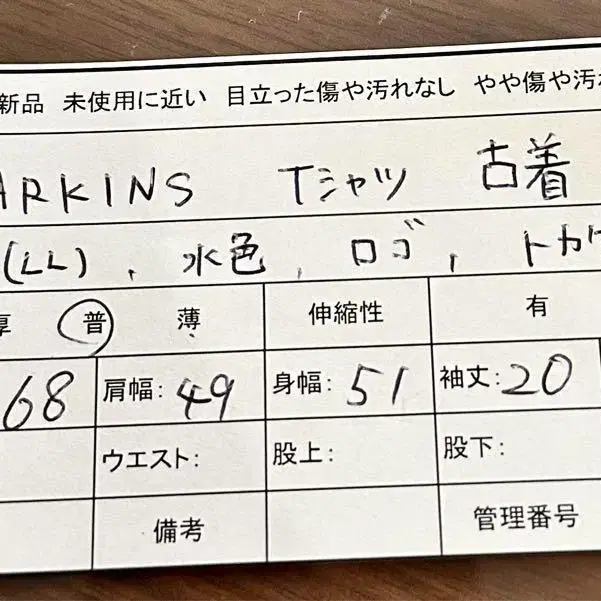 新品 未使用に近い 目立った傷や汚れなし やや傷や汚れ
ARKINS Tシャツ 古着
(LL)、水色、ロゴ、トカゲ
厚 普 薄 伸縮性 有
68 肩幅: 49 身幅: 51 袖丈: 20
ウエスト: 股上: 股下:
備考 管理番号